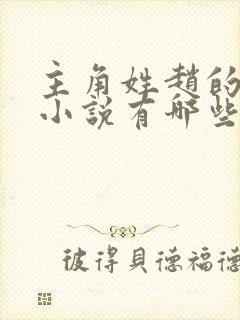 主角姓趙的
小說有哪些
彼得貝德福德